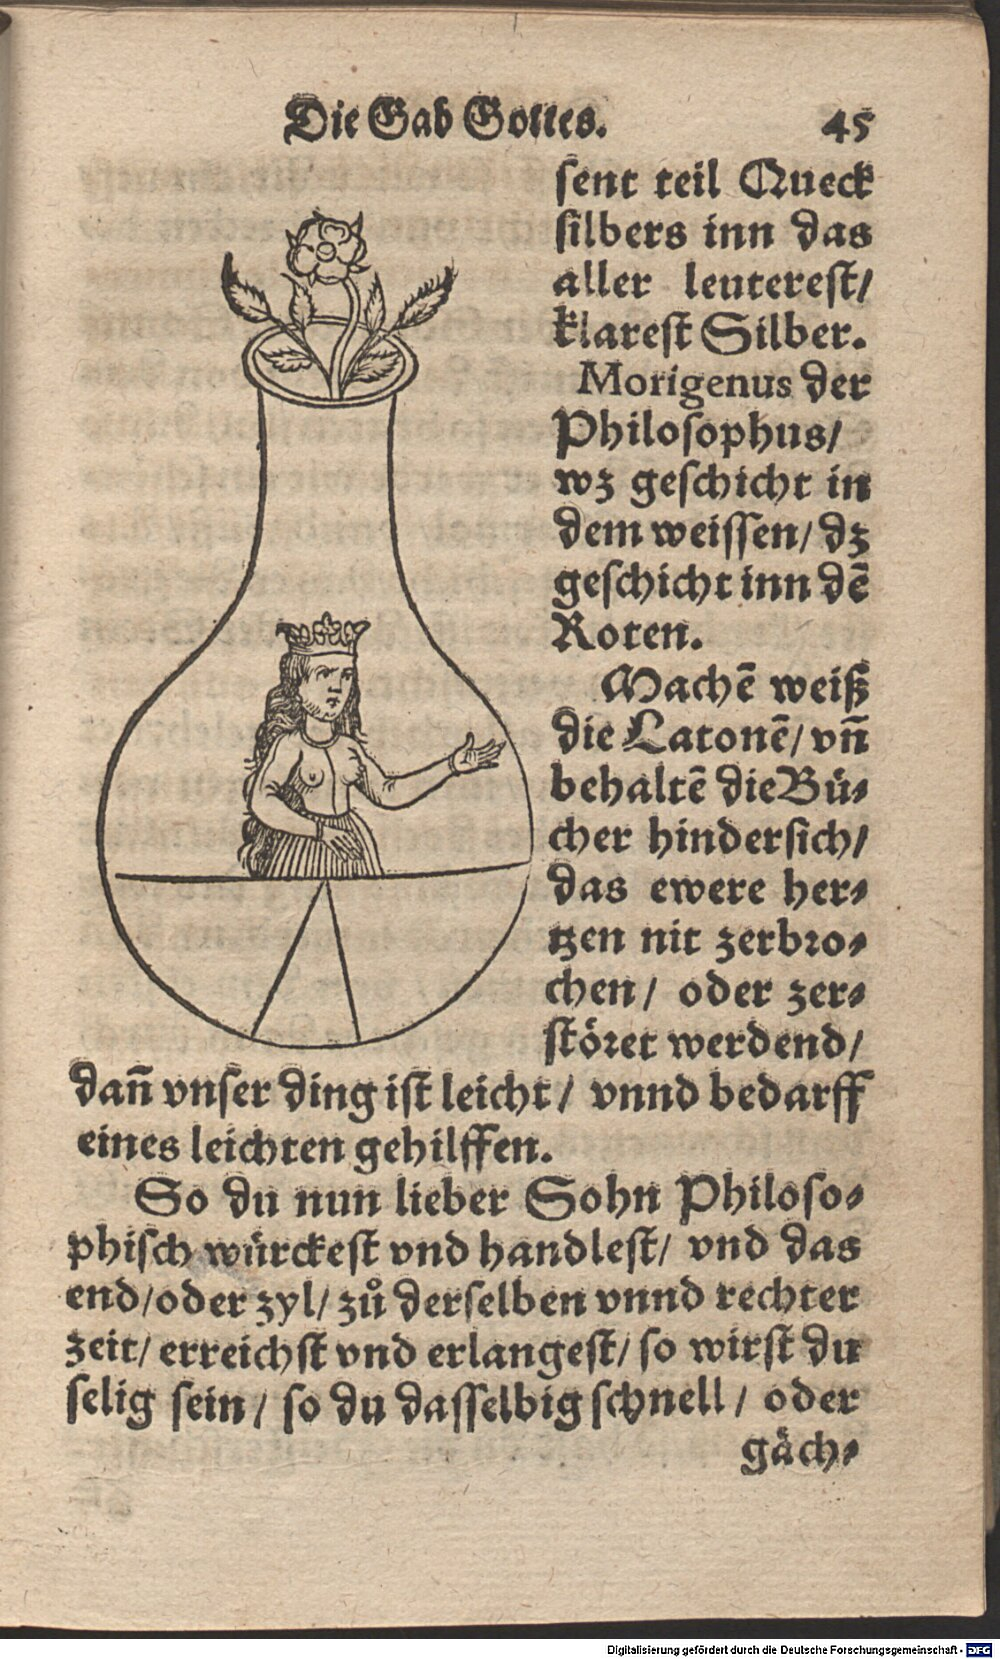 Die Gab Gottes. 45
sent teil Queck
silbers inn das
aller leuterest/
klarest Silber.
Morigenus der
Philosophus/
wz geschicht in
dem weissen/ dz
geschicht inn dē
Roten.
Machē weiß
die Latonē/ vn̄
behaltē die Bü⸗
cher hindersich/
das ewere her⸗
tzen nit zerbro⸗
chen/ oder zer⸗
störet werdend/
dan̄ vnser ding ist leicht/ vnnd bedarff
eines leichten gehilffen.
So du nun lieber Sohn Philoso⸗
phisch würckest vnd handlest/ vnd das
end/oder zyl/ zů derselben vnnd rechter
zeit/ erreichst vnd erlangest/ so wirst du
selig sein/ so du dasselbig schnell/ oder
gäch⸗
Digitalisierung gefördert durch die Deutsche Forschungsgemeinschaft - DFG